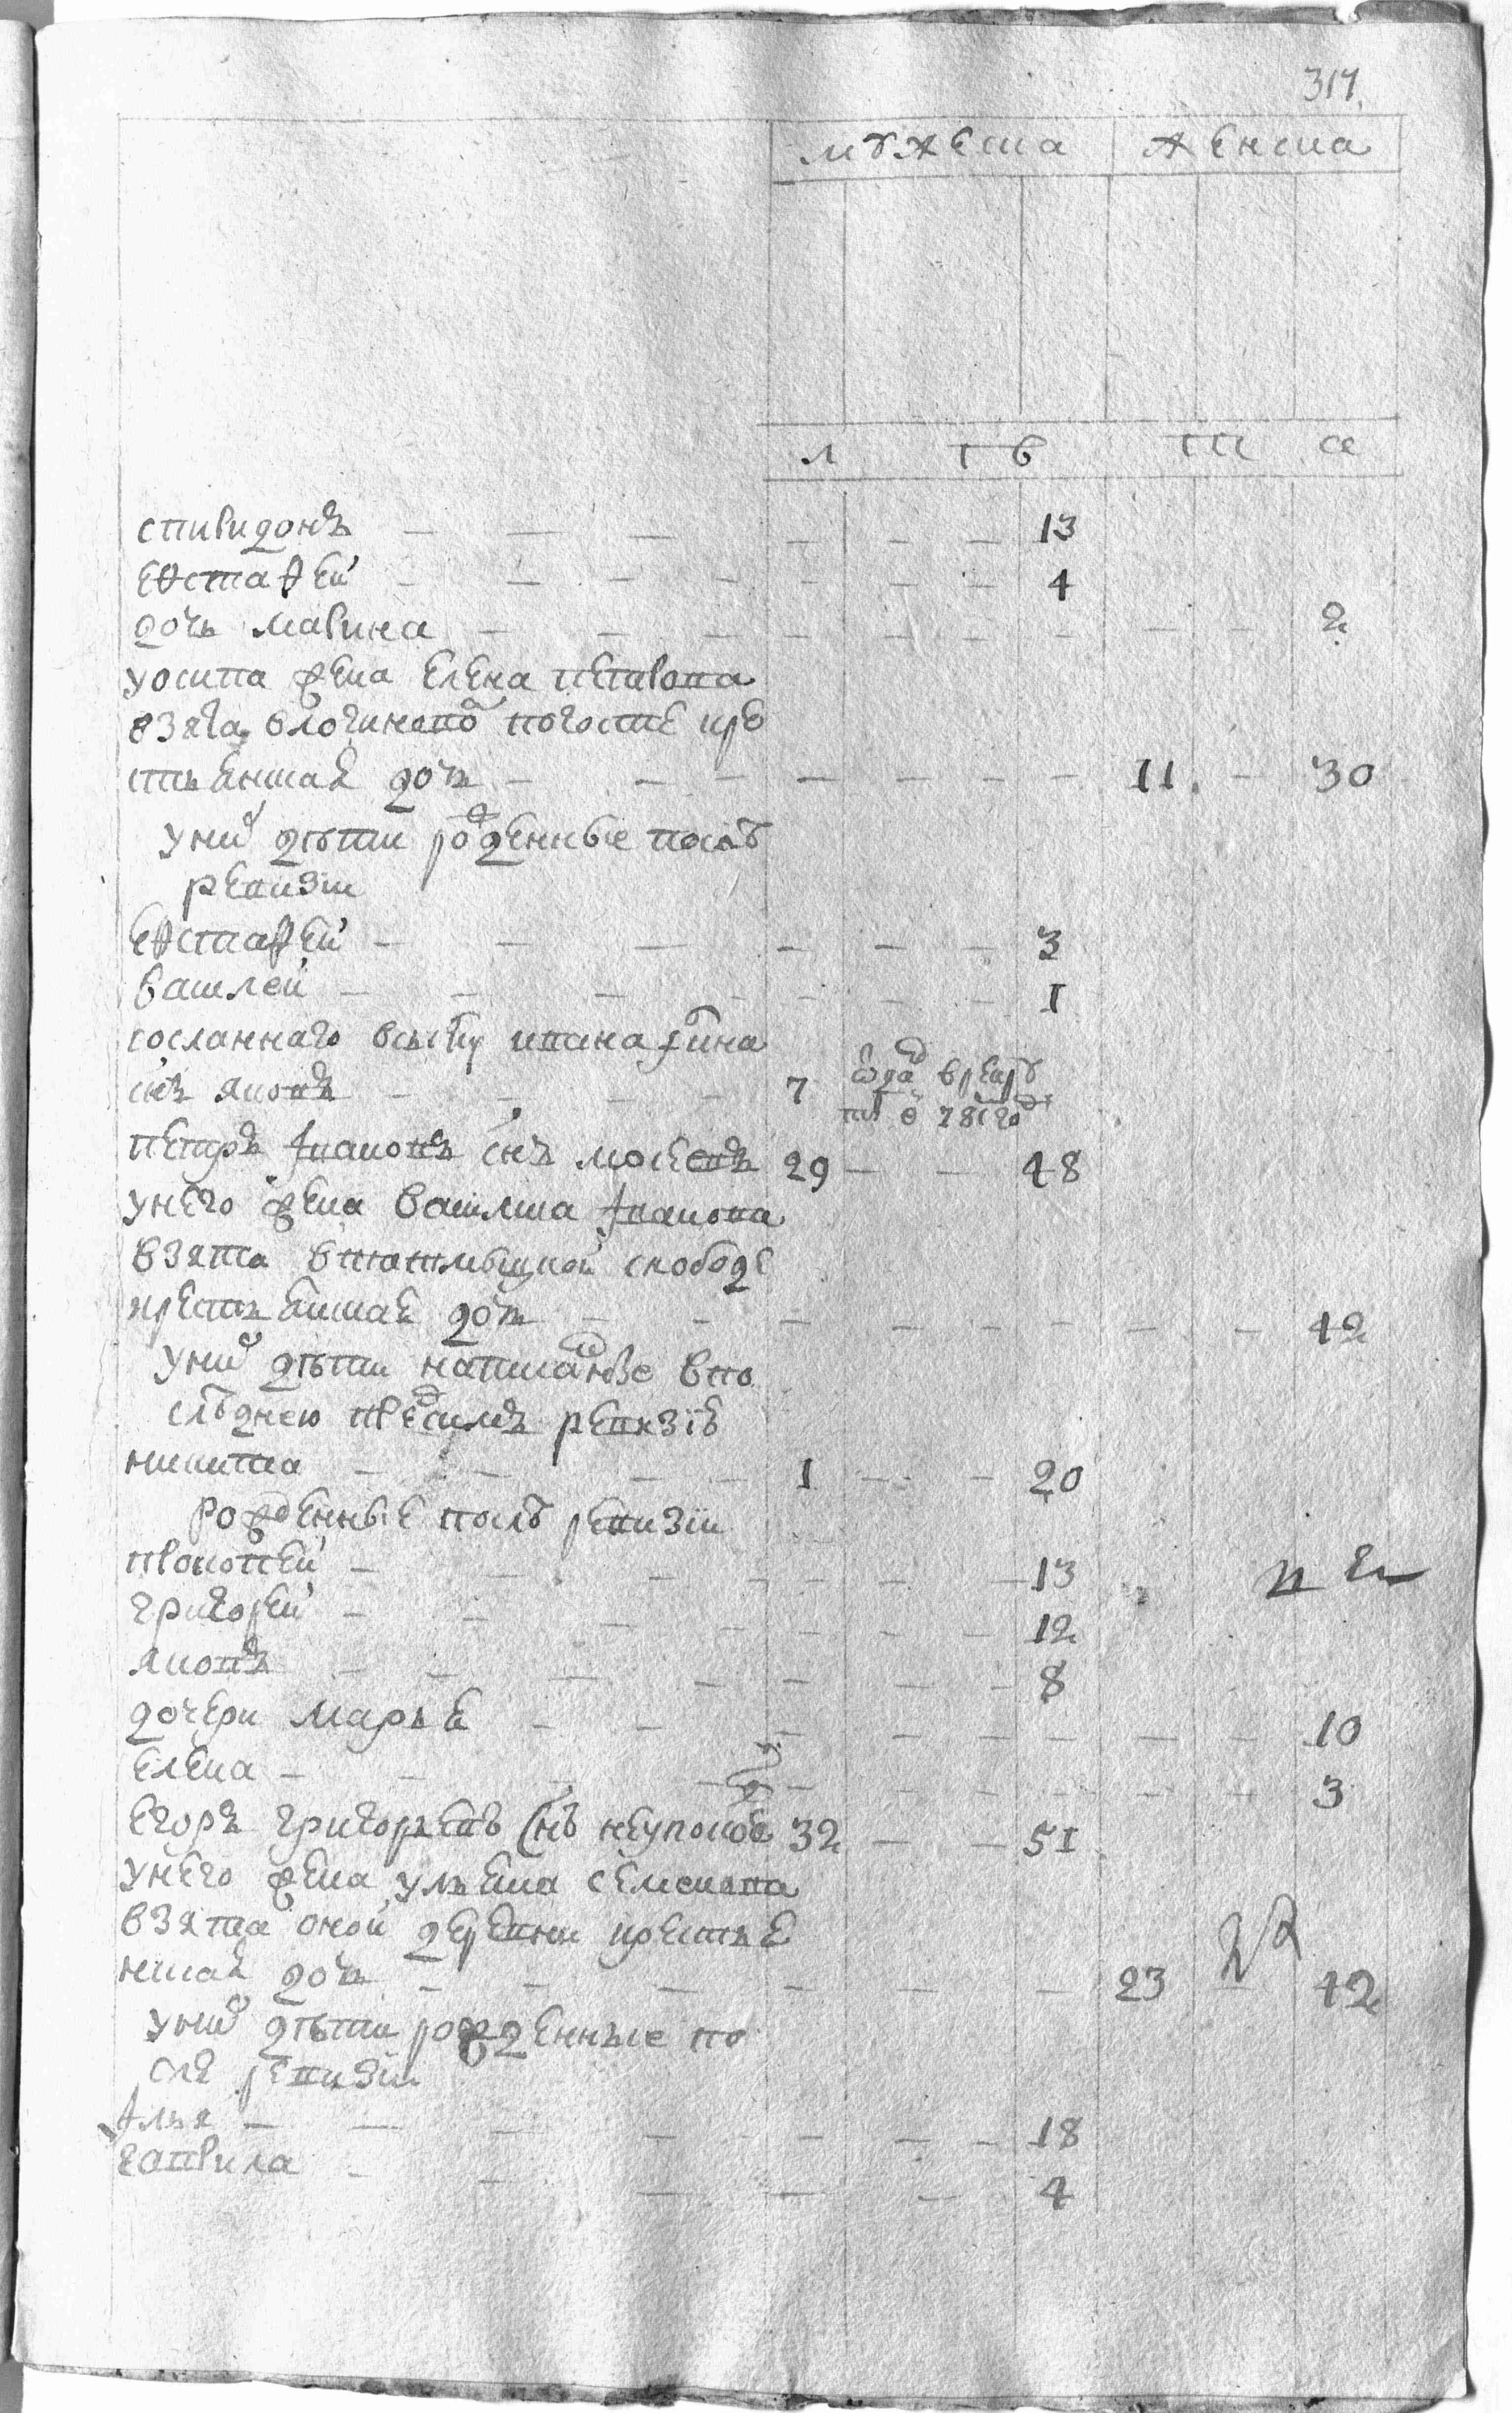 317.
мужеска женска
л т в т а
спиридонъ — — — — — — 13
евстафей — — — — — — 4
дочь марина — — — — — — — 2
у осипа жена елена петрова
взята в погосте кре
стьянская дочь — — — — — — 11. — 30
у них дѣти рожденные послѣ
ревизии
евстафей — — — — — — 3
василей — — — — — — 1
сосланнаго в ссылку ивана сына
снъ яковъ — — — — 7 отдан в рекруты
в 78г году
петръ ивановъ снъ мосеевъ 29 — — 48
у него жена василиса иванова
взята в слободе
крестьянская дочь — — — — — — — 42
у них дѣти написанные в по
слѣднею пред симъ ревизиѣ
никита — — — — 1 — — 20
рожденные послѣ ревизии
прокопей — — — — — — 13
григорей — — — — — — 12
яковъ — — — — — — 8
дочери марья — — — — — — — 10
елена — — — — — — — — 3
егоръ григорьевъ снъ неупокоев 32 — — 51
у него жена ульяна семенова
взята оной деревни крестья
нская дочь — — — — — 23 — 42
у них дѣти рожденные по
сле ревизии
илья — — — — — — — 18
гаврила — — — — — 4